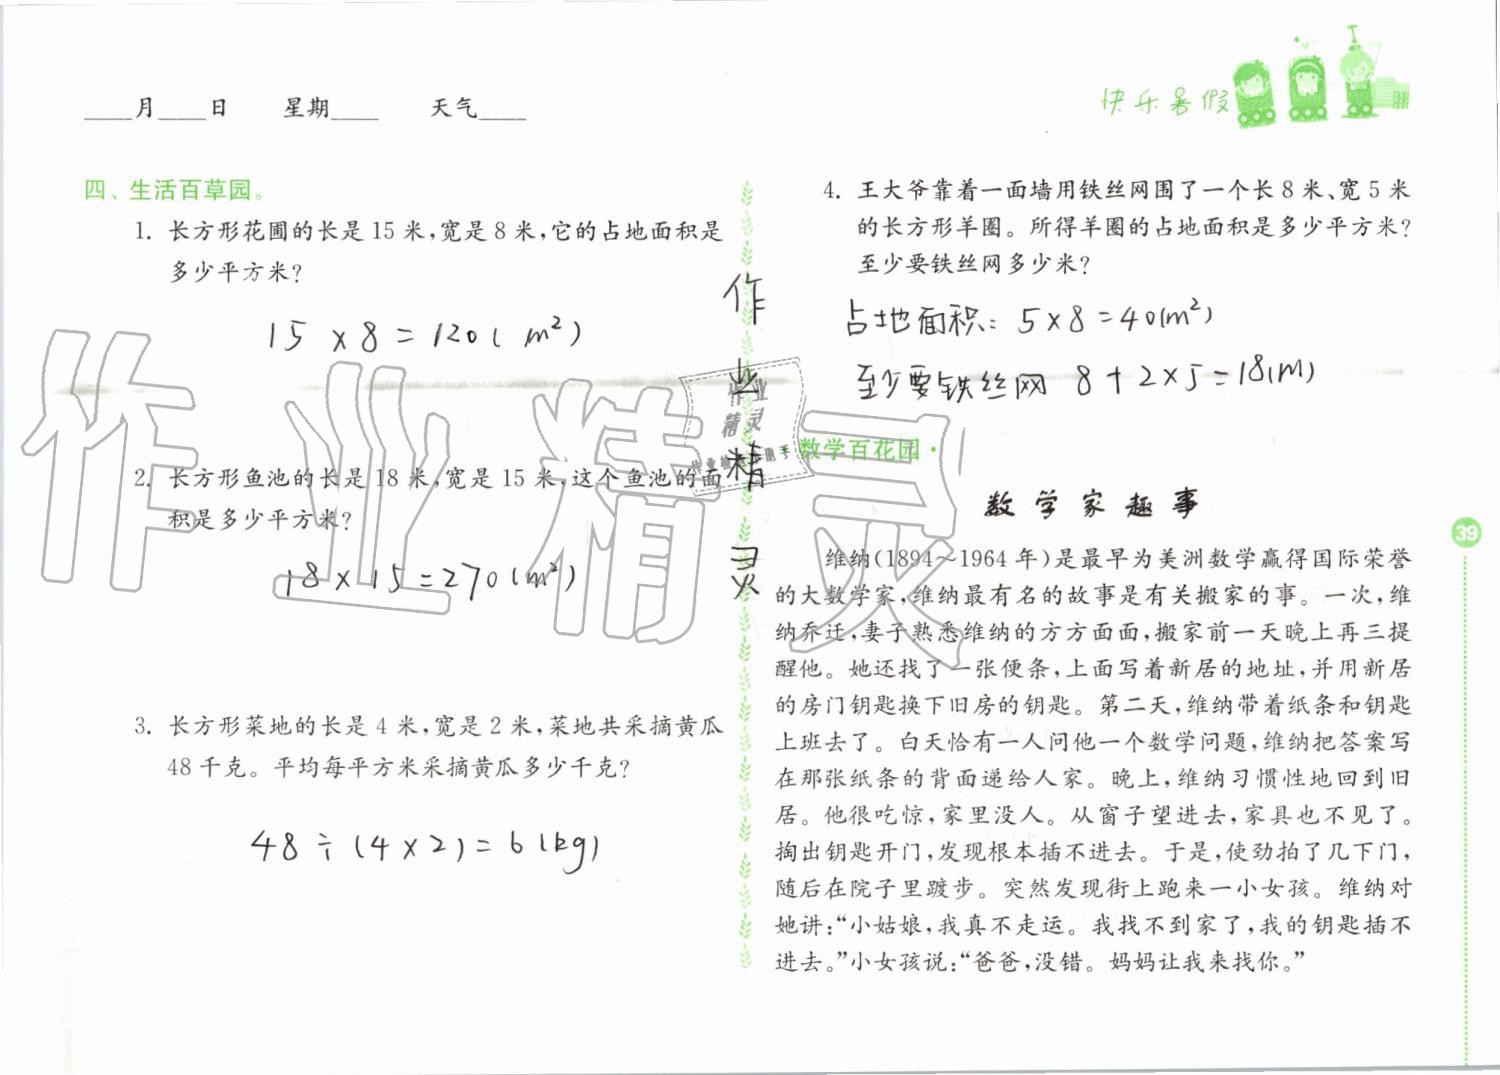 ____月____日 星期____ 天气____
快乐暑假
四、生活百草园。
1. 长方形花圃的长是15米,宽是8米,它的占地面积是
多少平方米?
15×8=120(m²)
2. 长方形鱼池的长是18米,宽是15米,这个鱼池的面
积是多少平方米?
18×15=270(m²)
3. 长方形菜地的长是4米,宽是2米,菜地共采摘黄瓜
48千克。平均每平方米采摘黄瓜多少千克?
48÷(4×2)=6(kg)
作业精灵
作业精灵
作业
精灵
4. 王大爷靠着一面墙用铁丝网围了一个长8米、宽5米
的长方形羊圈。所得羊圈的占地面积是多少平方米?
至少要铁丝网多少米?
占地面积:5×8=40(m²)
至少要铁丝网 8+2×5=18(m)
数学百花园·
数学家趣事
维纳(1894~1964年)是最早为美洲数学赢得国际荣誉
的大数学家,维纳最有名的故事是有关搬家的事。一次,维
纳乔迁,妻子熟悉维纳的方方面面,搬家前一天晚上再三提
醒他。她还找了一张便条,上面写着新居的地址,并用新居
的房门钥匙换下旧房的钥匙。第二天,维纳带着纸条和钥匙
上班去了。白天恰有一人问他一个数学问题,维纳把答案写
在那张纸条的背面递给人家。晚上,维纳习惯性地回到旧
居。他很吃惊,家里没人。从窗子望进去,家具也不见了。
掏出钥匙开门,发现根本插不进去。于是,使劲拍了几下门,
随后在院子里踱步。突然发现街上跑来一小女孩。维纳对
她讲:“小姑娘,我真不走运。我找不到家了,我的钥匙插不
进去。”小女孩说:“爸爸,没错。妈妈让我来找你。”
39